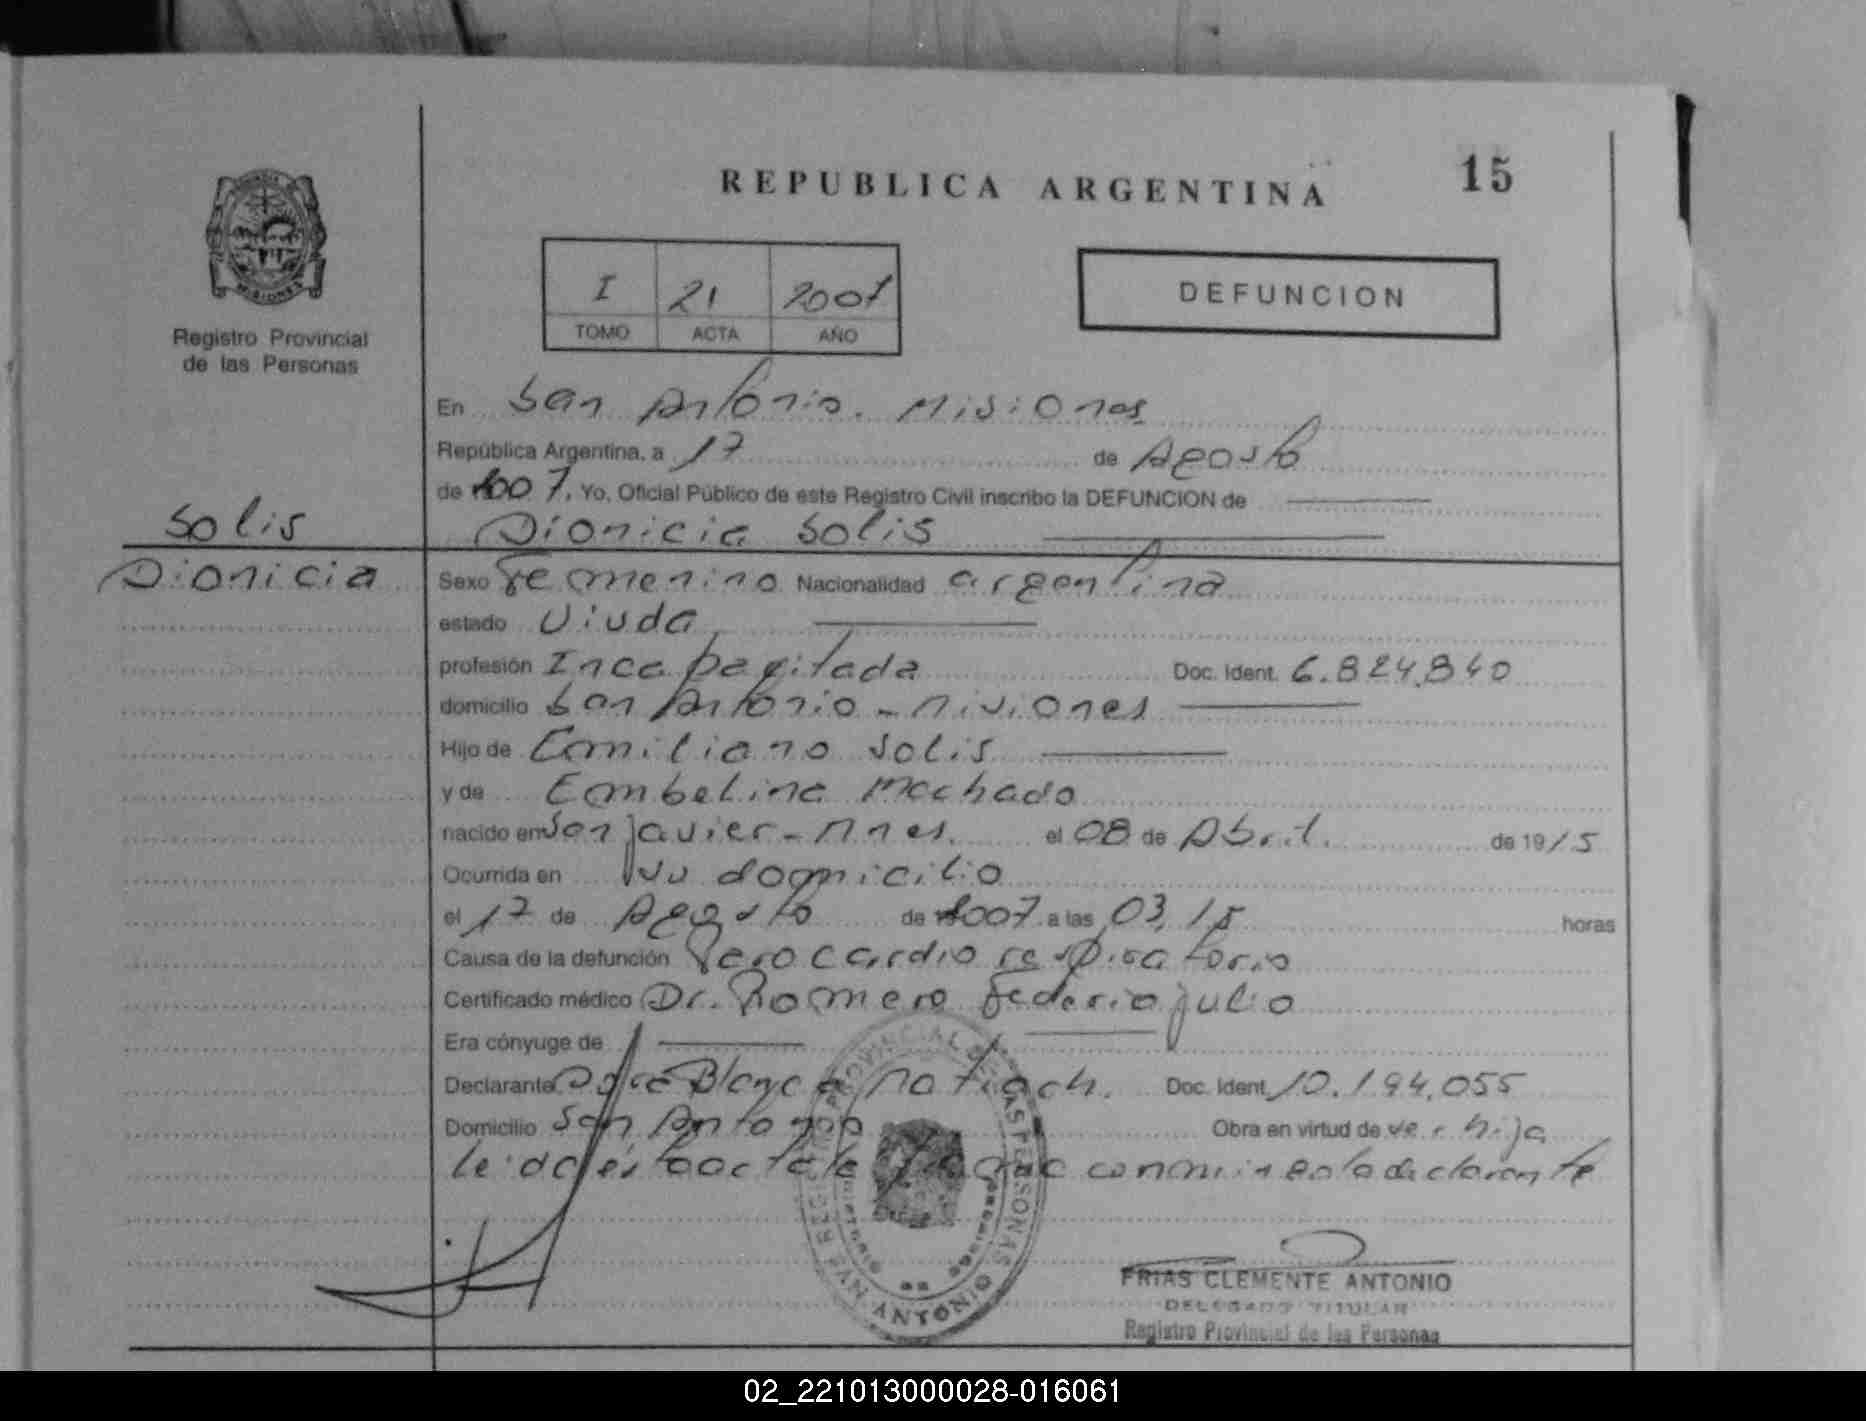 REPUBLICA ARGENTINA 15
I 21 2007
TOMO ACTA AÑO
DEFUNCION
MISIONES
Registro Provincial
de las Personas
Solis
Dionicia
En San Antonio. Misiones
República Argentina, a 17 de Agosto
de 2007. Yo, Oficial Público de este Registro Civil inscribo la DEFUNCION de
Dionicia Solis
Sexo Femenino Nacionalidad argentina
estado Viuda
profesión Incapacitada Doc. Ident. 6.824.840
domicilio San Antonio - Misiones
Hijo de Emiliano Solis
y de Embelina Machado
nacido en San Javier - Mnes. el 08 de Abril. de 1915
Ocurrida en su domicilio
el 17 de Agosto de 2007 a las 03,15 horas
Causa de la defunción Paro cardio respiratorio
Certificado médico Dr. Romero Federico Julio
Era cónyuge de
Declarante Blanca Doc. Ident. 10.194.055
Domicilio San Antonio Obra en virtud de ser hija
leida esta acta la firma conmigo la declarante
REGISTRO PROVINCIAL DE LAS PERSONAS
SAN ANTONIO
FRIAS CLEMENTE ANTONIO
DELEGADO TITULAR
Registro Provincial de las Personas
02_221013000028-016061